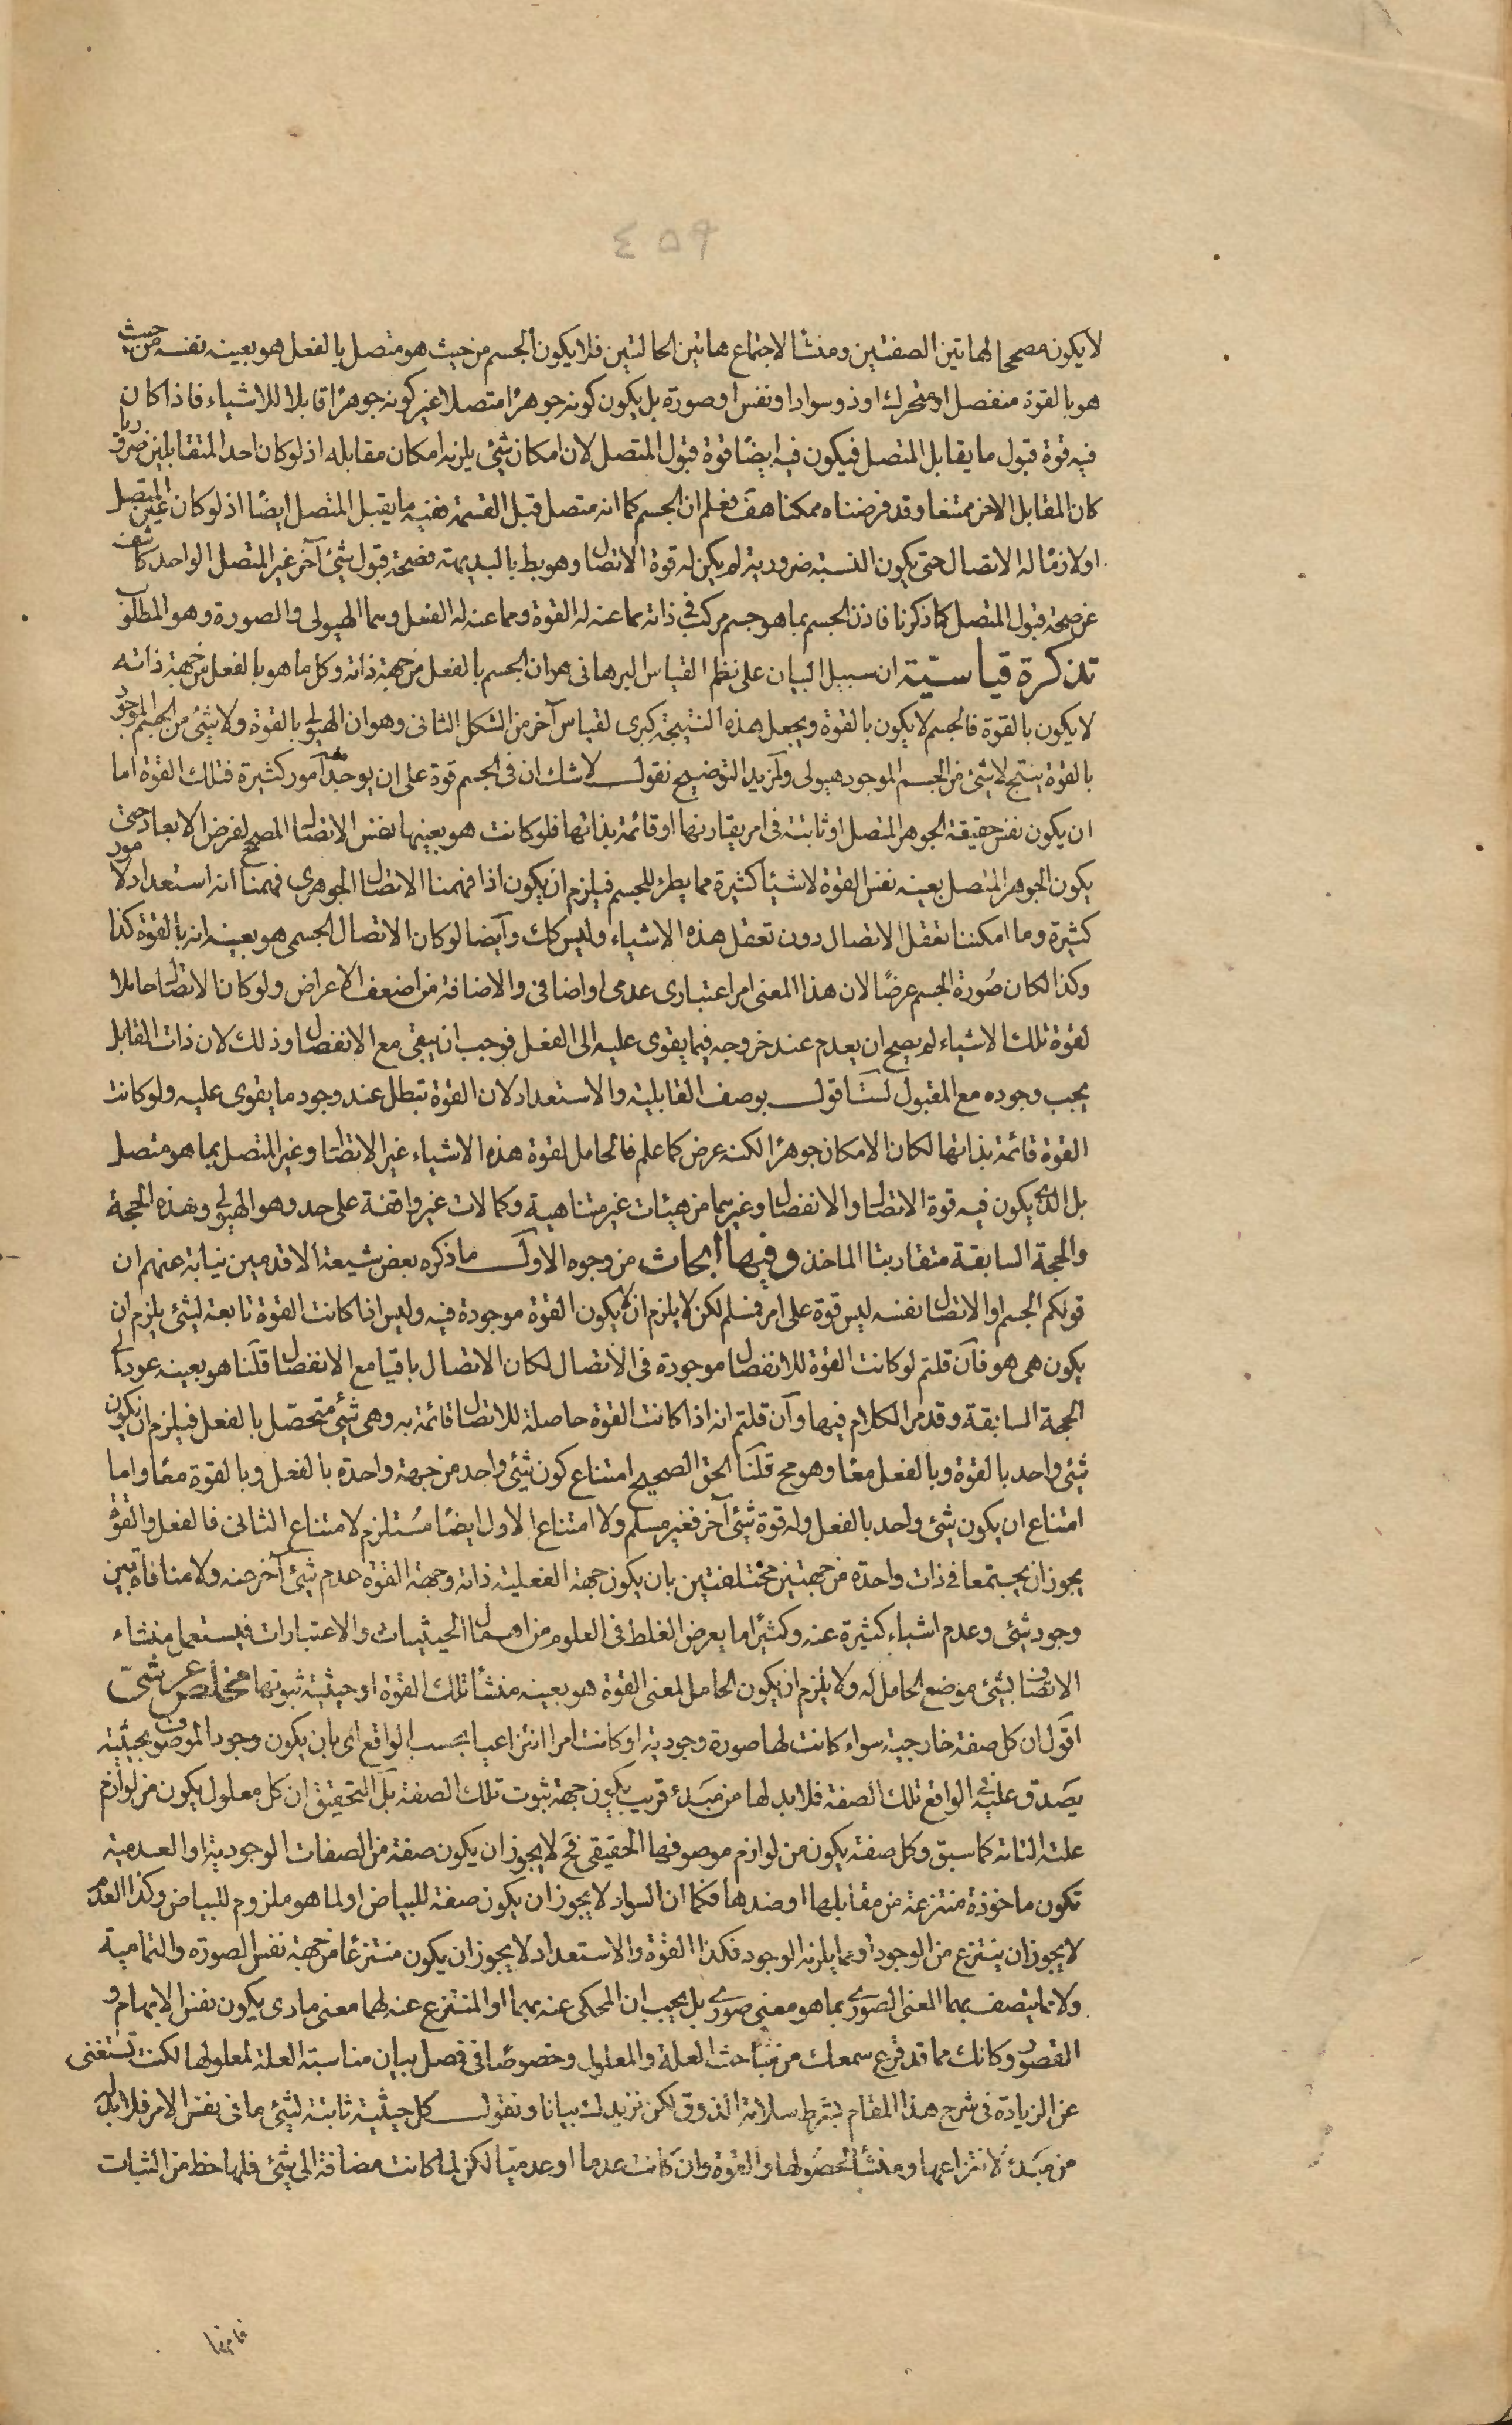 ٤٥٩
لا يكون مصححا لهاتين الصفتين ومنشأ لاجتماع هاتين الحالتين فلا يكون الجسم من حيث هو متصل بالفعل هو بعينه نفسه من حيث
هو بالقوة منفصل او متحرك او ذو سواد او نفس او صورة بل يكون كونه جوهرًا متصلا غير كونه جوهرًا قابلا للاشياء فاذا كان
فيه قوة قبول ما يقابل المتصل فيكون فيه ايضًا قوة قبول المتصل لان امكان شئ يلزمه امكان مقابله اذ لو كان احد المتقابلين ضروريا
كان المقابل الاخر ممتنعا وقد فرضناه ممكنا هف فعلم ان الجسم كما انه متصل قبل القسمة ففيه ما يقبل المتصل ايضًا اذ لو كان عين المتصل
او لازمًا له الاتصال حتى يكون النسبة ضرورية لم يكن له قوة الاتصال وهو بط بالبديهة فصحة قبول شئ آخر غير المتصل الواحد كاشف
عن صحة قبول المتصل كما ذكرنا فاذن الجسم بما هو جسم مركب في ذاته مما عنه له القوة ومما عنه له الفعل وهما الهيولى والصورة وهو المطلوب
تذكرة قياسيّة ان سبيل البيان على نظم القياس البرهانى هو ان الجسم بالفعل من جهة ذاته وكل ما هو بالفعل من جهة ذاته
لا يكون بالقوة فالجسم لا يكون بالقوة ويجعل هذه النتيجة كبرى لقياس آخر من الشكل الثانى وهو ان الهيولى بالقوة ولا شئ من الجسم الموجود
بالقوة ينتج لا شئ من الجسم الموجود هيولى ولمزيد التوضيح نقول لا شك ان فى الجسم قوة على ان يوجد فيه امور كثيرة فتلك القوة اما
ان يكون نفس حقيقة الجوهر المتصل او ثابتة فى امر يقارنها او قائمة بذاتها فلو كانت هو بعينها نفس الاتصال المصحح لفرض الابعاد حتى
يكون الجوهر المتصل بعينه نفس القوة لاشياء كثيرة مما يطرء للجسم فيلزم ان يكون اذا فهمنا الاتصال الجوهرى فهمنا انه استعداد لامور
كثيرة وما امكننا تعقل الاتصال دون تعقل هذه الاشياء وليس كك وآيضا لو كان الاتصال الجسمى هو بعينه انه بالقوة كذا
وكذا لكان صُورة الجسم عرضًا لان هذا المعنى امر اعتبارى عدمى او اضافى والاضافة من اضعف الاعراض ولو كان الاتصال حاملا
لقوة تلك الاشياء لم يصح ان يعدم عند خروجه فيما يقوى عليه الى الفعل فوجب ان يبقى مع الانفصال وذلك لان ذات القابل
يجب وجوده مع المقبول لست اقول بوصف القابلية والاستعداد لان القوة تبطل عند وجود ما يقوى عليه ولو كانت
القوة قائمة بذاتها لكان الامكان جوهرًا لكنه عرض كما علم فالحامل لقوة هذه الاشياء غير الاتصال وغير المتصل بما هو متصل
بل الذى يكون فيه قوة الاتصال والانفصال وغيرهما من هيئات غير متناهية وكمالات غير واقفة على حد وهو الهيولى وهذه الحجة
والحجة السابقة متقاربتا الماخذ وفيها ابحاث من وجوه الاول ما ذكره بعض شيعة الاقدمين نيابة عنهم ان
قولكم الجسم او الاتصال نفسه ليس قوة على امر فنسلم لكن لا يلزم ان لا يكون القوة موجودة فيه وليس اذا كانت القوة تابعة لشئ يلزم ان
يكون هى هو فآن قلتم لو كانت القوة للانفصال موجودة فى الاتصال لكان الاتصال باقيا مع الانفصال قلنا هو بعينه عود الى
الحجة السابقة وقد مر الكلام فيها وآن قلتم انه اذا كانت القوة حاصلة للاتصال قائمة به وهى شئ متحصّل بالفعل فيلزم ان يكون
شئ واحد بالقوة وبالفعل معًا وهو مح قلنا الحق الصحيح امتناع كون شئ واحد من جهة واحدة بالفعل وبالقوة معًا واما
امتناع ان يكون شئ واحد بالفعل وله قوة شئ آخر فغير مسلم ولا امتناع الاول ايضًا مُستلزم لامتناع الثانى فالفعل والقوة
يجوز ان يجتمعا فى ذات واحدة من جهتين مختلفتين بان يكون جهة الفعلية ذاته وجهة القوة عدم شئ آخر عنه ولا منافاة بين
وجود شئ وعدم اشياء كثيرة عنه وكثيرًا ما يعرض الغلط فى العلوم من اهمال الحيثيات والاعتبارات فيستعمل منشاء
الاتصاف بشئ موضع الحامل له ولا يلزم ان يكون الحامل لمعنى القوة هو بعينه منشأ تلك القوة او حيثية ثبوتها مخلص عرشىّ
اقول ان كل صفة خارجية سواء كانت لها صورة وجودية او كانت امرا انتزاعيا بحسب الواقع اى بان يكون وجود الموصوف بحيثية
يصدق عليه فى الواقع تلك الصفة فلابد لها من مبدء قريب يكون جهة ثبوت تلك الصفة بل التحقيق ان كل معلول يكون من لوازم
علته التامة كما سبق وكل صفة يكون من لوازم موصوفها الحقيقى فح لا يجوز ان يكون صفة من الصفات الوجودية او العدمية
تكون ماخوذة منتزعة من مقابلها او ضدها فكما ان السواد لا يجوز ان يكون صفة للبياض او لما هو ملزوم للبياض وكذا العدم
لا يجوز ان ينتزع من الوجود او مما يلزمه الوجود فكذا القوة والاستعداد لا يجوز ان يكون منتزعًا من جهة نفس الصورة والتمامية
ولا مما يتصف بهما المعنى الصورى بما هو معنى صورى بل يجب ان المحكى عنه بهما او المنتزع عنه لهما معنى مادى يكون نفس الابهام و
القصور وكانك مما قد قرع سمعك من مباحث العلة والمعلول وخصوصًا فى فصل بيان مناسبة العلة لمعلولها لكنت تستغنى
عن الزيادة فى شرح هذا المقام بشرط سلامة الذوق لكن نزيدك بيانا ونقول كل حيثية ثابتة لشئ ما فى نفس الامر فلابد له
من مبدء لانتزاعها ومنشأ لحصولها والقوة وان كانت عدما او عدميّا لكن لما كانت مضافة الى شئ فلها حظ من الثبات